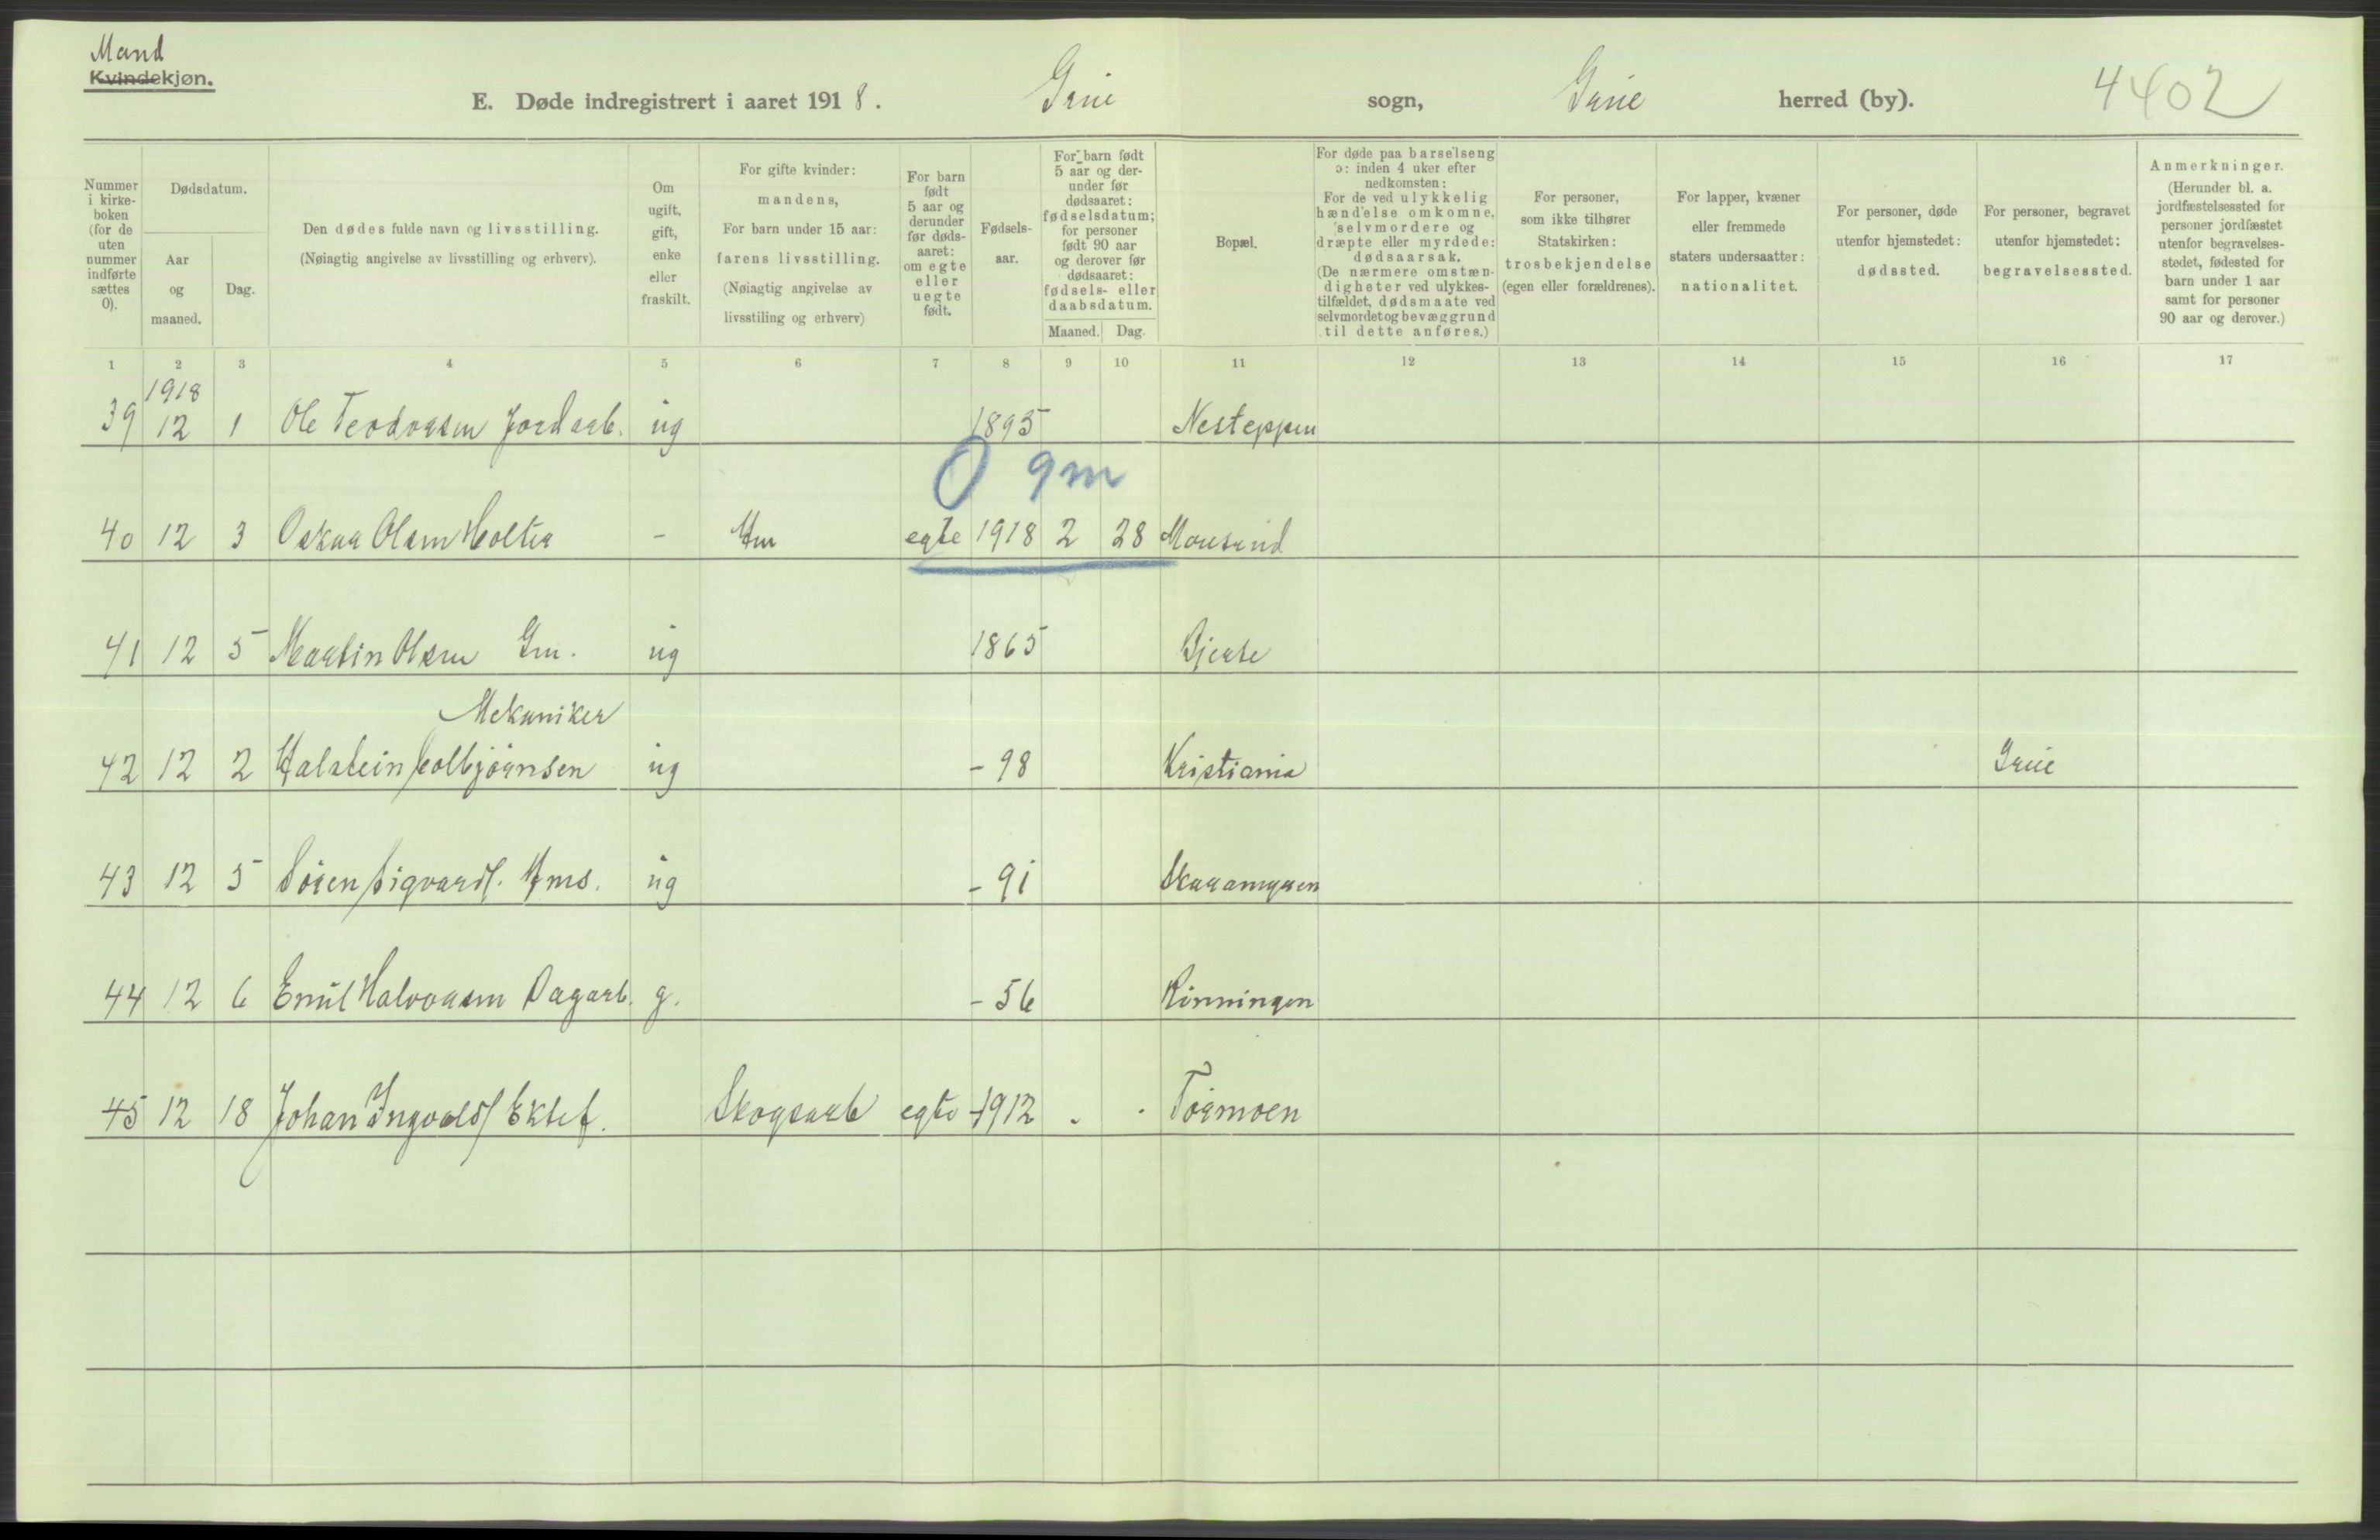 Mand
Kvindekjøn.
E. Døde indregistrert i aaret 1918. Grue sogn, Grue herred (by). 4402
Nummer i kirke-boken (for de uten nummer indførte sættes 0).
Dødsdatum.
Aar og maaned.
Dag.
Den dødes fulde navn og livsstilling.
(Nøiagtig angivelse av livsstilling og erhverv).
Om ugift, gift, enke eller fraskilt.
For gifte kvinder:
mandens,
For barn under 15 aar:
farens livsstilling.
(Nøiagtig angivelse av
livsstiling og erhverv)
For barn født 5 aar og derunder før døds-aaret: om egte eller uegte født.
Fødsels-aar.
For barn født 5 aar og der-under før dødsaaret: fødselsdatum; for personer født 90 aar og derover før dødsaaret: fødsels- eller daabsdatum.
Maaned. Dag.
Bopæl.
For døde paa barselseng ɔ: inden 4 uker efter nedkomsten: For de ved ulykkelig hændelse omkomne, selvmordere og dræpte eller myrdede: dødsaarsak. (De nærmere omstæn-digheter ved ulykkes-tilfældet, dødsmaate ved selvmordet og bevæggrund til dette anføres.)
For personer, som ikke tilhører Statskirken: trosbekjendelse (egen eller forældrenes).
For lapper, kvæner eller fremmede staters undersaatter: nationalitet.
For personer, døde utenfor hjemstedet: dødssted.
For personer, begravet utenfor hjemstedet: begravelsessted.
Anmerkninger. (Herunder bl. a. jordfæstelsessted for personer jordfæstet utenfor begravelses-stedet, fødested for barn under 1 aar samt for personer 90 aar og derover.)
1 2 3 4 5 6 7 8 9 10 11 12 13 14 15 16 17
1918
39 12 1 Ole Teodorsen Jordarb. ug 1895 Nesteppen
0 9m
40 12 3 Oskar Olsen Holter - Hm egte 1918 2 28 Mousand
41 12 5 Martin Olsen Gm. ug 1865 Bjerke
Mekaniker
42 12 2 Halstein Kolbjørnsen ug - 98 Kristiania Grue
43 12 5 Søren Sigvards. Hms. ug - 91 Skaramyren
44 12 6 Emil Halvorsen Dagarb. g. - 56 Rønningen
45 12 18 Johan Ingvalds Eklef. Skogsarb egte -1912 - · Tørmoen